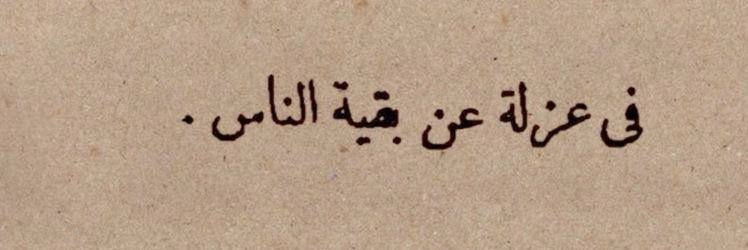 فى عزلة عن بقية الناس .